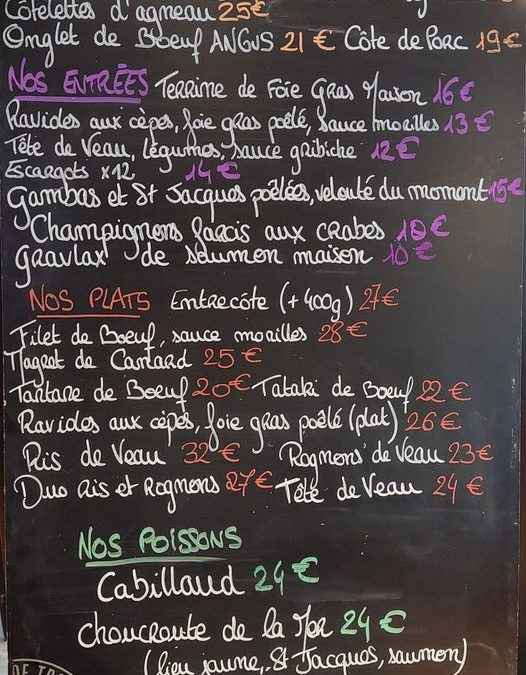 Côtelettes d'agneau 25€
Onglet de Boeuf ANGUS 21 € Côte de Porc 19€
NOS ENTRÉES Terrine de Foie Gras Maison 16€
Ravioles aux cèpes, foie gras poêlé, sauce morilles 13 €
Tête de Veau, légumes, sauce gribiche 12€
Escargots x12 14 €
Gambas et St Jacques poêlées, velouté du moment 15€
Champignons farcis aux crabes 10€
Gravlax de saumon maison 10€
NOS PLATS Entrecôte (+400g) 27€
Filet de Boeuf, sauce morilles 28€
Magret de Canard 25 €
Tartare de Boeuf 20€ Tataki de Boeuf 22 €
Ravioles aux cèpes, foie gras poêlé (plat) 26 €
Ris de Veau 32€ Rognons de Veau 23€
Duo Ris et Rognons 27€ Tête de Veau 24 €
NOS POISSONS
Cabillaud 24€
Choucroute de la Mer 24 €
(lieu jaune, St Jacques, saumon)